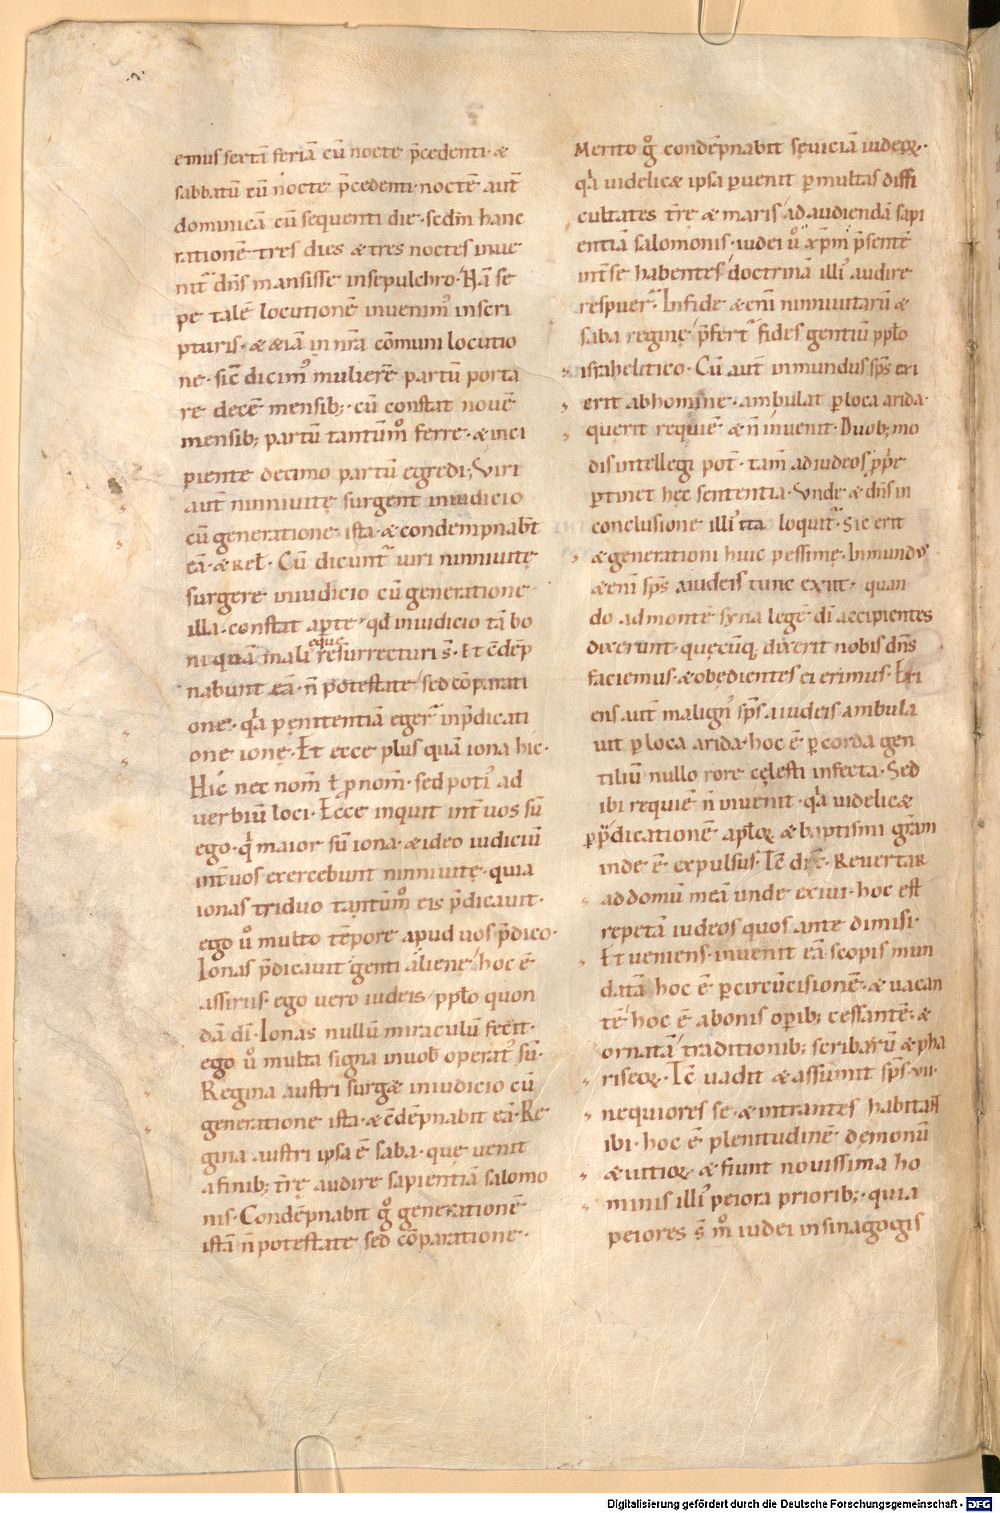 emus sextā feriā cū nocte p̄cedenti· &
sabbatū cū nocte p̄cedenti· noctē aut̄
dominicā cū sequenti die· sed̄m hanc
rationē tres dies & tres noctes inue
nit᷑ dn̄s mansisse in sepulchro· Nā se
pe talē locutionē inuenim᷒ in scri
pturis· & &iā in nr̄a cōmuni locutio
ne· sic̄ dicim᷒ mulierē partū porta
re decē mensib;· cū constat nouē
mensib; partū tantūm̊ ferre· & inci
piente decimo partū egredi; Viri
aut̄ niniuitę surgent in iudicio
cū generatione ista· & condempnabt̄
eā· & rel̄· Cū dicunt᷑ uiri niniuitę
surgere in iudicio cū generatione
illa· constat aꝑte· qd̄ in iudicio tā bo
ni quā mali eque resurrecturi s̄· Et c̄dēp
nabunt eā· n̄ potestate sed cōparati
one· qͥa pęnitentiā eger᷑ in p̄dicati
one ionę· Et ecce plus quā iona hic·
Hic nec nom̄ ł ꝓnom̄· sed poti᷒ ad
uerbiū loci· Ecce inquit int̄ uos sū
ego· qͥ maior sū iona· & ideo iudiciū
int̄ uos exercebunt niniuitę· quia
ionas triduo tantūm̊ eis p̄dicauit·
ego ů multo tēpore apud uos p̄dico·
Ionas p̄dicauit genti alienę hoc ē
assirus· ego uero iudeis pp̄lo quon
dā dī· Ionas nullū miraculū fecit·
ego ů multa signa in uob̄ operat᷒ sū·
Regina austri surg& in iudicio cū
generatione ista· & c̄dēpnabit eā· Re
gina austri ipsa ē saba· que uenit
a finib; tr̄ę audire sapientiā salomo
nis· Condēpnabit g̊ generationē
istā n̄ potestate sed cōparatione·
Merito g̊ condēpnabit sęuiciā iudeoꝝ·
qͥa uidelic& ipsa ꝑuenit ꝑ multas diffi
cultates tr̄e & maris ad audiendā sapi
entiā salomonis· iudei ů xp̄m p̄sentē
int̄ se habentes doctrinā illi᷒ audire
respuer᷑· In fide & enī niniuitarū &
saba reginę p̄fert᷑ fides gentiū pp̄lo
israhelitico· Cū aut̄ inmundus sp̄s exi
erit ab homine· ambulat ꝑ loca arida·
querit requiē & n̄ inuenit· Duob; mo
dis intellegi pot̄· tam̄ ad iudeos ꝓp̄e
ꝑtinet hęc sententia· Vnde & dn̄s in
conclusione illi᷒ ita loquit᷑· Sic erit
& generationi huic pessimę· Inmund᷒
& enī sp̄s a iudeis tunc exiit· quan
do ad montē syna legē dī accipientes
dixerunt· quęcūq; dixerit nobis dn̄s
faciemus· & obedientes ei erimus· Exi
ens aut̄ malign᷒ sp̄s a iudeis ambula
uit ꝑ loca arida· hoc ē ꝑ corda gen
tiliū nullo rore cęlesti infecta· Sed
ibi requiē n̄ inuenit· qͥa uidelic&
ꝑ p̄dicationē apl̄oꝝ & baptismi grām
inde ē expulsus· Tc̄ dic̄· Reuertar
ad domū meā unde exiui· hoc est
repetā iudeos quos ante dimisi·
Et ueniens· inuenit eā scopis mun
datā hoc ē ꝑ circūcisionē· & uacan
tē hoc ē a bonis oꝑib; cessantē· &
ornatā traditionib; scribarū & pha
riseoꝝ· Tc̄ uadit & assumit sp̄s ·vii·
nequiores se· & intrantes habitant
ibi· hoc ē plenitudinē demonū
& uitioꝝ· & fiunt nouissima ho
minis illi᷒ peiora priorib;· quia
peiores s̄ m̊ iudei in sinagogis
Digitalisierung gefördert durch die Deutsche Forschungsgemeinschaft - DFG